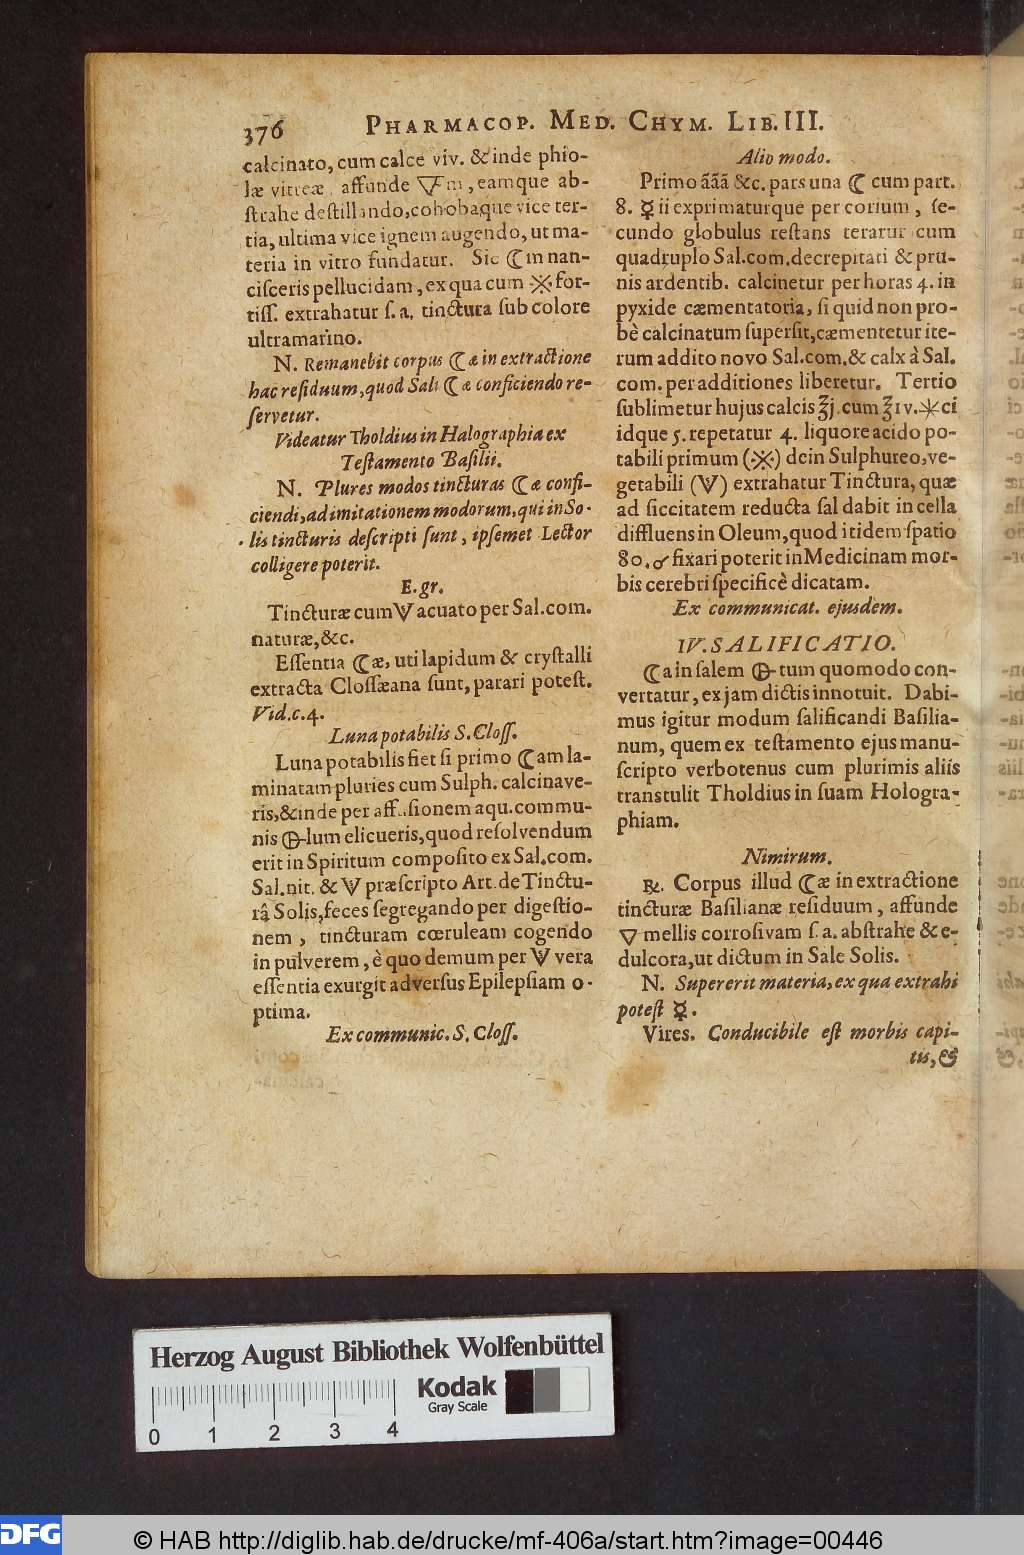 376 PHARMACOP. MED. CHYM. LIB. III.
calcinato, cum calce viv. & inde phio-
læ vitreæ, affunde 🜄m, eamque ab-
ſtrahe deſtillando, cohobaque vice ter-
tia, ultima vice ignem augendo, ut ma-
teria in vitro fundatur. Sic ☾m nan-
ciſceris pellucidam, ex qua cum ※ for-
tiſſ. extrahatur ſ. a. tinctura ſub colore
ultramarino.
N. Remanebit corpus ☾æ in extractione
hac reſiduum, quod Sali ☾æ conficiendo re-
ſervetur.
Videatur Tholdius in Halographia ex
Teſtamento Baſilii.
N. Plures modos tincturas ☾æ confi-
ciendi, ad imitationem modorum, qui in So-
lis tincturis deſcripti ſunt, ipſemet Lector
colligere poterit.
E. gr.
Tincturæ cum V acuato per Sal. com.
naturæ, &c.
Eſſentia ☾æ, uti lapidum & cryſtalli
extracta Cloſſæana ſunt, parari poteſt.
Vid. c. 4.
Luna potabilis S. Cloſſ.
Luna potabilis fiet ſi primo ☾am la-
minatam pluries cum Sulph. calcinave-
ris, & inde per affuſionem aqu. commu-
nis 🜔lum elicueris, quod reſolvendum
erit in Spiritum compoſito ex Sal. com.
Sal. nit. & V præſcripto Art. de Tinctu-
râ Solis, feces ſegregando per digeſtio-
nem, tincturam cœruleam cogendo
in pulverem, è quo demum per V vera
eſſentia exurgit adverſus Epilepſiam o-
ptima.
Ex communic. S. Cloſſ.
Alio modo.
Primo ããã &c. pars una ☾ cum part.
8. ☿ii exprimaturque per corium, ſe-
cundo globulus reſtans teratur cum
quadruplo Sal. com. decrepitati & pru-
nis ardentib. calcinetur per horas 4. in
pyxide cæmentatoria, ſi quid non pro-
bè calcinatum ſuperſit, cæmentetur ite-
rum addito novo Sal. com. & calx à Sal.
com. per additiones liberetur. Tertio
ſublimetur hujus calcis ℥j. cum ℥iv. ⚹ci
idque 5. repetatur 4. liquore acido po-
tabili primum (※) dein Sulphureo, ve-
getabili (V) extrahatur Tinctura, quæ
ad ſiccitatem reducta ſal dabit in cella
diffluens in Oleum, quod itidem ſpatio
80. ♂ fixari poterit in Medicinam mor-
bis cerebri ſpecificè dicatam.
Ex communicat. ejusdem.
IV. SALIFICATIO.
☾a in ſalem 🜔tum quomodo con-
vertatur, ex jam dictis innotuit. Dabi-
mus igitur modum ſalificandi Baſilia-
num, quem ex teſtamento ejus manu-
ſcripto verbotenus cum plurimis aliis
transtulit Tholdius in ſuam Hologra-
phiam.
Nimirum.
℞. Corpus illud ☾æ in extractione
tincturæ Baſilianæ reſiduum, affunde
🜄 mellis corroſivam ſ. a. abſtrahe & e-
dulcora, ut dictum in Sale Solis.
N. Supererit materia, ex qua extrahi
poteſt ☿.
Vires. Conducibile eſt morbis capi-
tis, &
Herzog August Bibliothek Wolfenbüttel
Kodak
Gray Scale
0 1 2 3 4
DFG © HAB http://diglib.hab.de/drucke/mf-406a/start.htm?image=00446